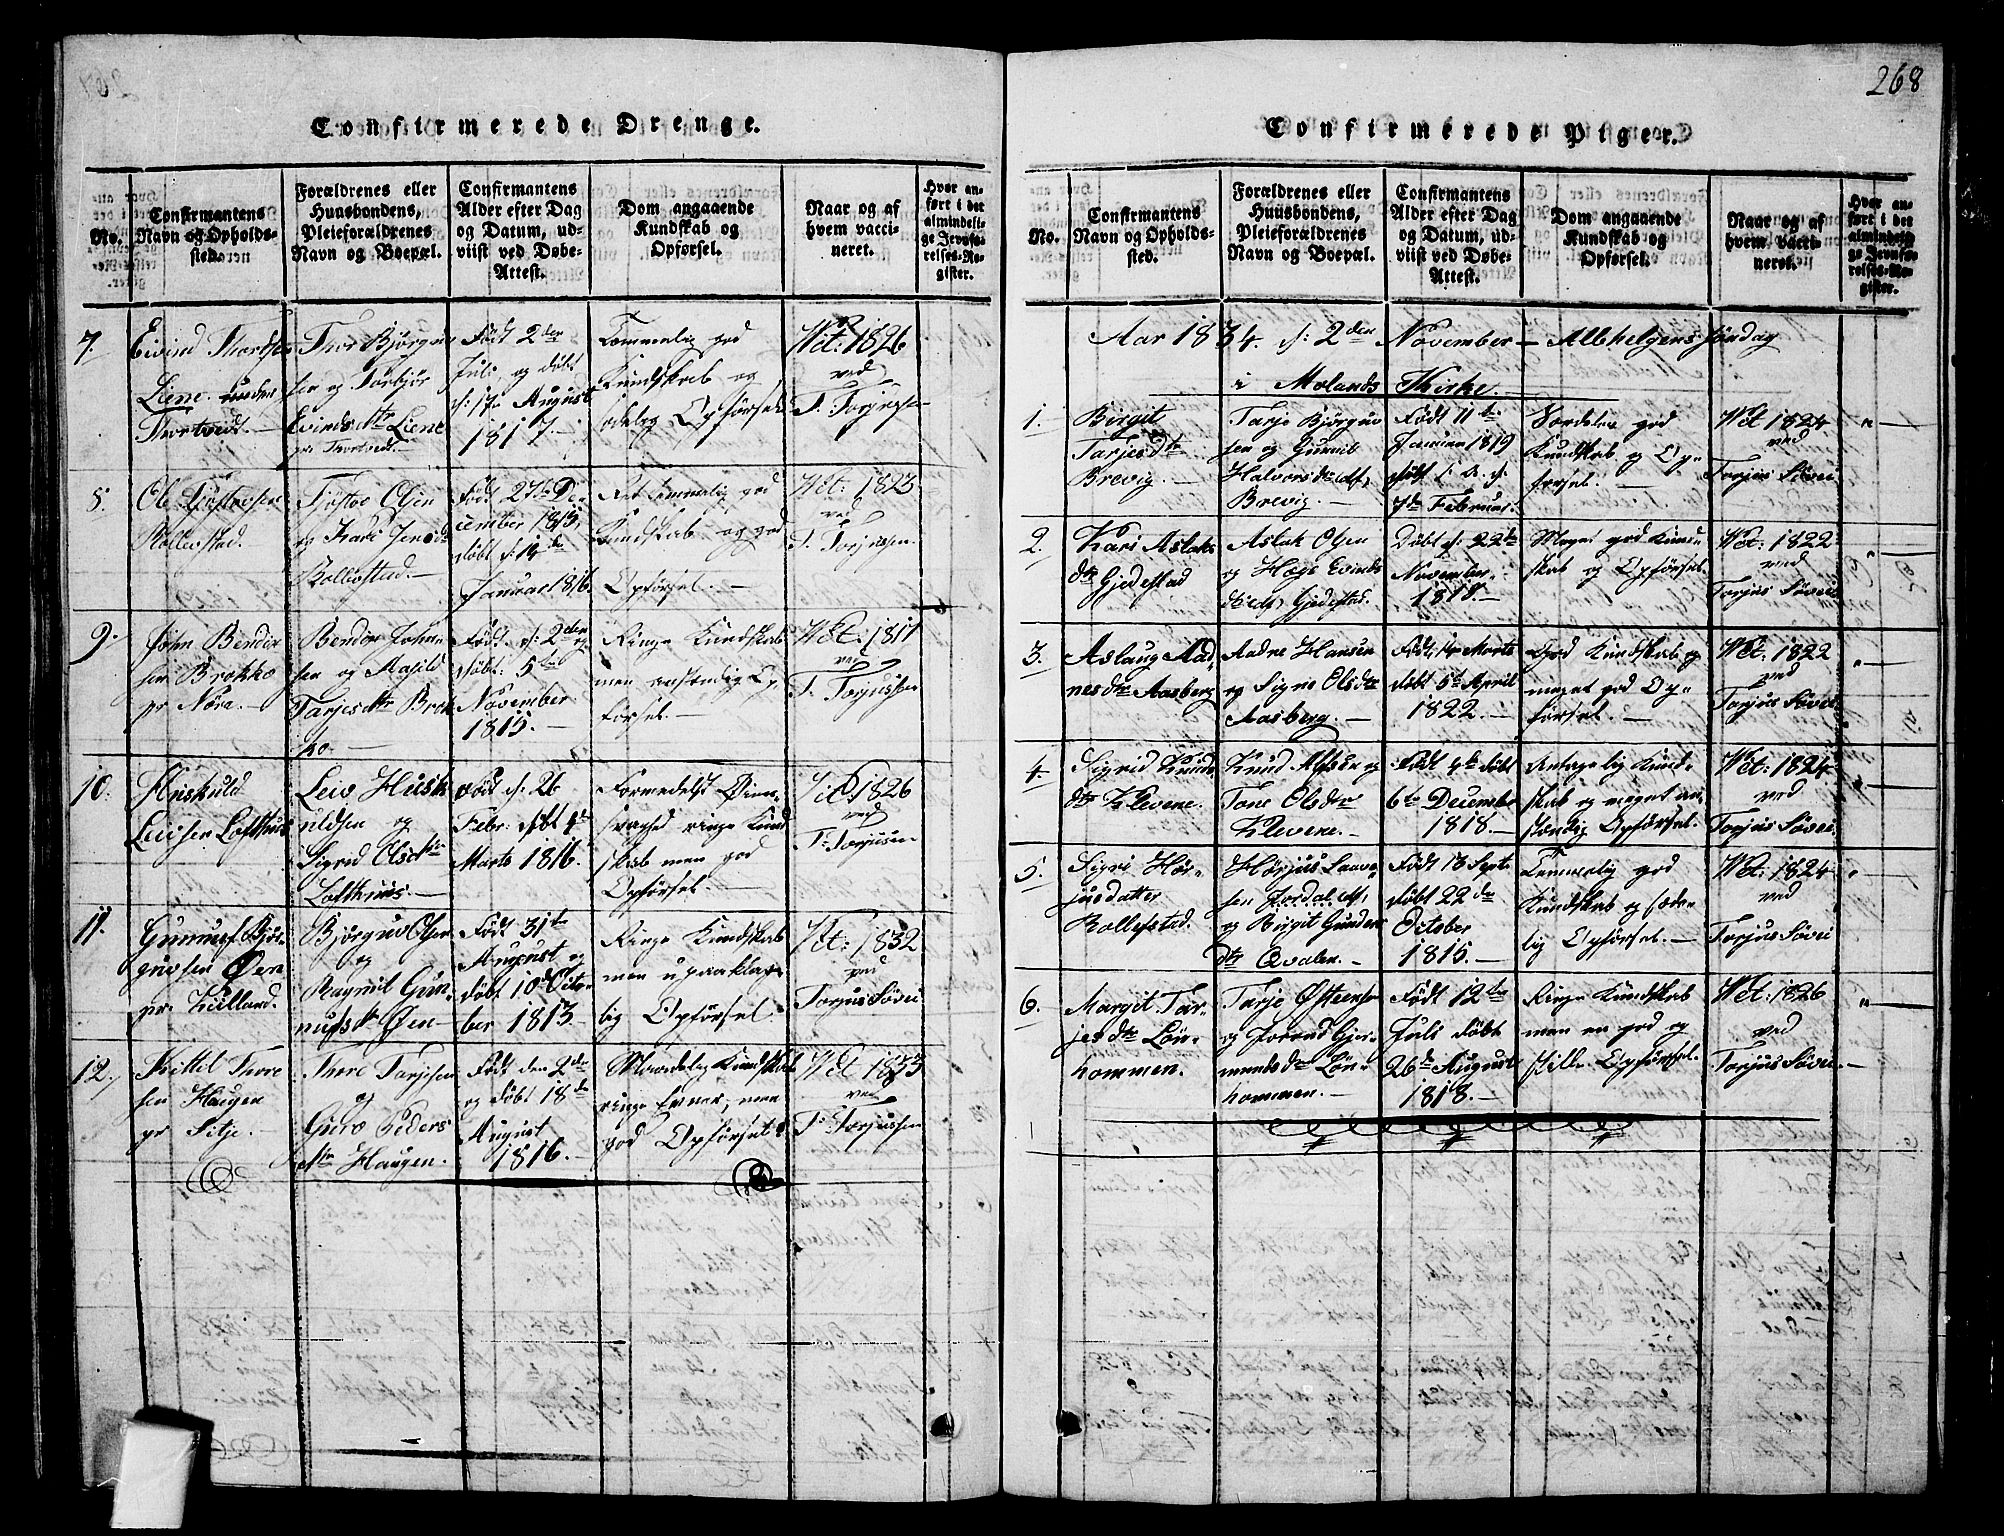 268
Confirmerede Drenge.
No.
Confirmantens Navn og Opholdssted.
Forældrenes eller Huusbondens, Pleieforældrenes Navn og Boepæl.
Confirmantens Alder efter Dag og Datum, udviist ved Døbe-Attest.
Dom angaaende Kundskab og Opførsel.
Naar og af hvem vaccineret.
Hvor anført i det almindelige Jevnførelses-Register.
7.
Eivind Thordsen
Liene under
Thortvedt.
Thor Bjørgu
sen og Torbjør
Evinds dtr Liene
pr Thortvedt.
Født 2den
Juli, og døbt
d: 17 August
1817.
Temmelig god
Kundskab og
sædelig Opførsel
1826
ved
T. Torjussen
8.
Rollevstad.
Olsen
og Kari
Rollevstad.
Født 27de De-
cember 1815,
døbt d: 14de
Januar 1816.
Ret temmelig god
Kundskab og god
Opførsel.
1823
ved
T. Torjussen.
9.
John Bendix
sen Brokke
pr Nora.
sen og
Tarjesdtr Brok
ke
Født d: 2den og
døbt 5te
November
1815.
Ringe Kundskab
men anstændig Op-
førsel.
ved
T. Torjussen
10.
Huskuld
Leivsen Lofthuus
Leiv Husk
uldsen og
Sigrid Olsdtr
Lofthuus.
Født d. 26
Febr: døbt 4de
Marts 1816.
Formedelst Øien-
svaghed ringe Kund
skab men god
Opførsel.
1826
ved
T. Torjussen
11.
Gunnuf Bjør-
gufsen Øen
pr.
Bjørguv Olsen
og
Ragnil Gun-
nufsdtr Øen
Født 31te
August og
døbt 10de Octo-
ber 1813
Ringe Kundskab
men upaaklage-
lig Opførsel.
1832
ved
Torjus Søvei
12.
Kittil Thore
sen Haugen
pr
Thore Tarjesen
og
Guro Peders
dtr Haugen.
Født den 2de
og døbt 18de
August
1816.
Maadelig Kundskab
ringe Evner, men
god Opførsel
1833
ved
T. Torjussen
Confirmerede Piger.
No.
Confirmantens Navn og Opholdssted.
Forældrenes eller Huusbondens, Pleieforældrenes Navn og Boepæl.
Confirmantens Alder efter Dag og Datum, udviist ved Døbe-Attest.
Dom angaaende Kundskab og Opførsel.
Naar og af hvem vaccineret.
Hvor anført i det almindelige Jevnførelses-Register.
Aar 1834. d: 2den November – Allehelgens Søndag
i Molands Kirke.
1.
Birgit
Tarjesdtr
Brevig.
Tarje Bjørguv
sen og Gunnil
Halvorsdtr
Brevig.
Født 11te
Januar 1819
døbt
7de Februar.
god
Kundskab og Op-
førsel.
1824
ved
Torjus Søvei
2.
Kari Aslaks
dtr Gjedestad
Aslak Olsen
og Hæge Evinds
Gjedestad.
Døbt d: 22de
November
1818.
Meget god Kund-
skab og Opførsel.
1822
ved
Torjus Søvei
3.
Aslaug Aad-
nesdtr Aasberg
Aadne Hansen
og Signe Olsdtr
Aasberg.
Marts
døbt 5te April
1822.
God Kundskab og
meget god Op-
førsel.
1822
ved
Torjus Søvei
4.
Sigrid Knuds
dtr Klevene.
Knud og
Tone Olsdtr
Klevene.
Født 4de døbt
6te December
1818.
Antagelig Kund-
skab og meget an-
stændig Opførsel.
1824
ved
Torjus Søvei
5.
Sigri Hør-
jusdatter
Rollefstad.
Hørjus Laave-
sen
og Birgit Gunders
dtr Qvalen.
Født 13 Sept
døbt 22de
October
1815.
Temmelig god
Kundskab og sæde-
lig Opførsel.
1824
ved
Torjus Søvei
6.
Margit Tar-
jesdtr Løn-
hommen.
Tarje Østensen
og
Løn-
hommen.
Født 12te
Juli døbt
26de August
1818.
Ringe Kundskab
men en god og
stille Opførsel.
1826
ved
Torjus Søvei